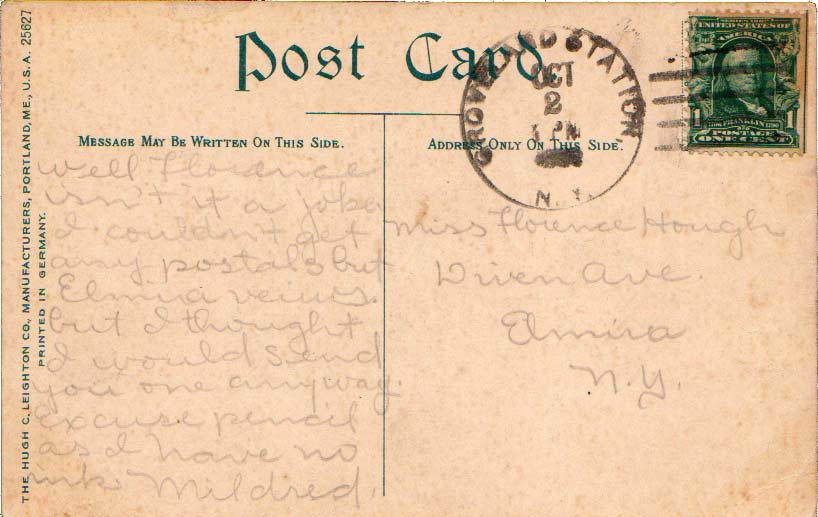 Post Card.
MESSAGE MAY BE WRITTEN ON THIS SIDE.
ADDRESS ONLY ON THIS SIDE.
THE HUGH C. LEIGHTON CO., MANUFACTURERS, PORTLAND, ME., U.S.A. 25627
PRINTED IN GERMANY.
GROVELAND STATION,
OCT
2
PM
N.Y.
SERIES 1902
UNITED STATES OF
AMERICA
1 1
FRANKLIN
POSTAGE
ONE CENT
Well Florence
isn't it a joke
I couldn't get
any postals but
Elmira veiws.
but I thought
I would send
you one anyway.
excuse pencil
as I have no
ink. Mildred.
Miss Florence Hough
Diven Ave.
Elmira
N.Y.